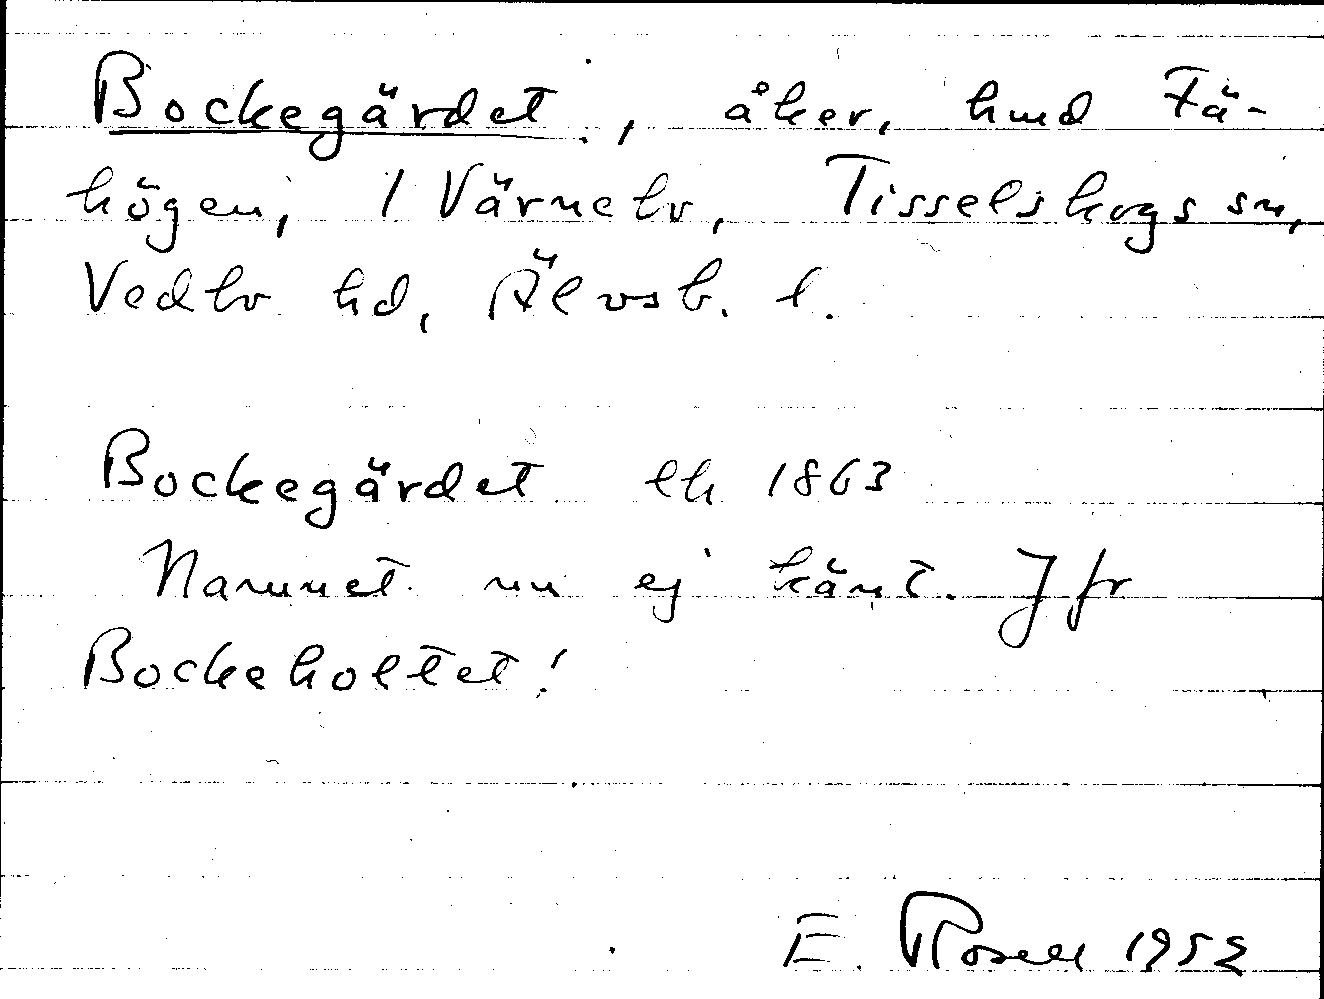 Bockegärdet, åker, hmd Fä-
högen, 1 Värnebo, Tisselskogs sn,
Vedbo hd, Älvsb. l.
Bockegärdet lk 1863
Namnet nu ej känt. Jfr
Bockeholtet!
E. Rosell 1952